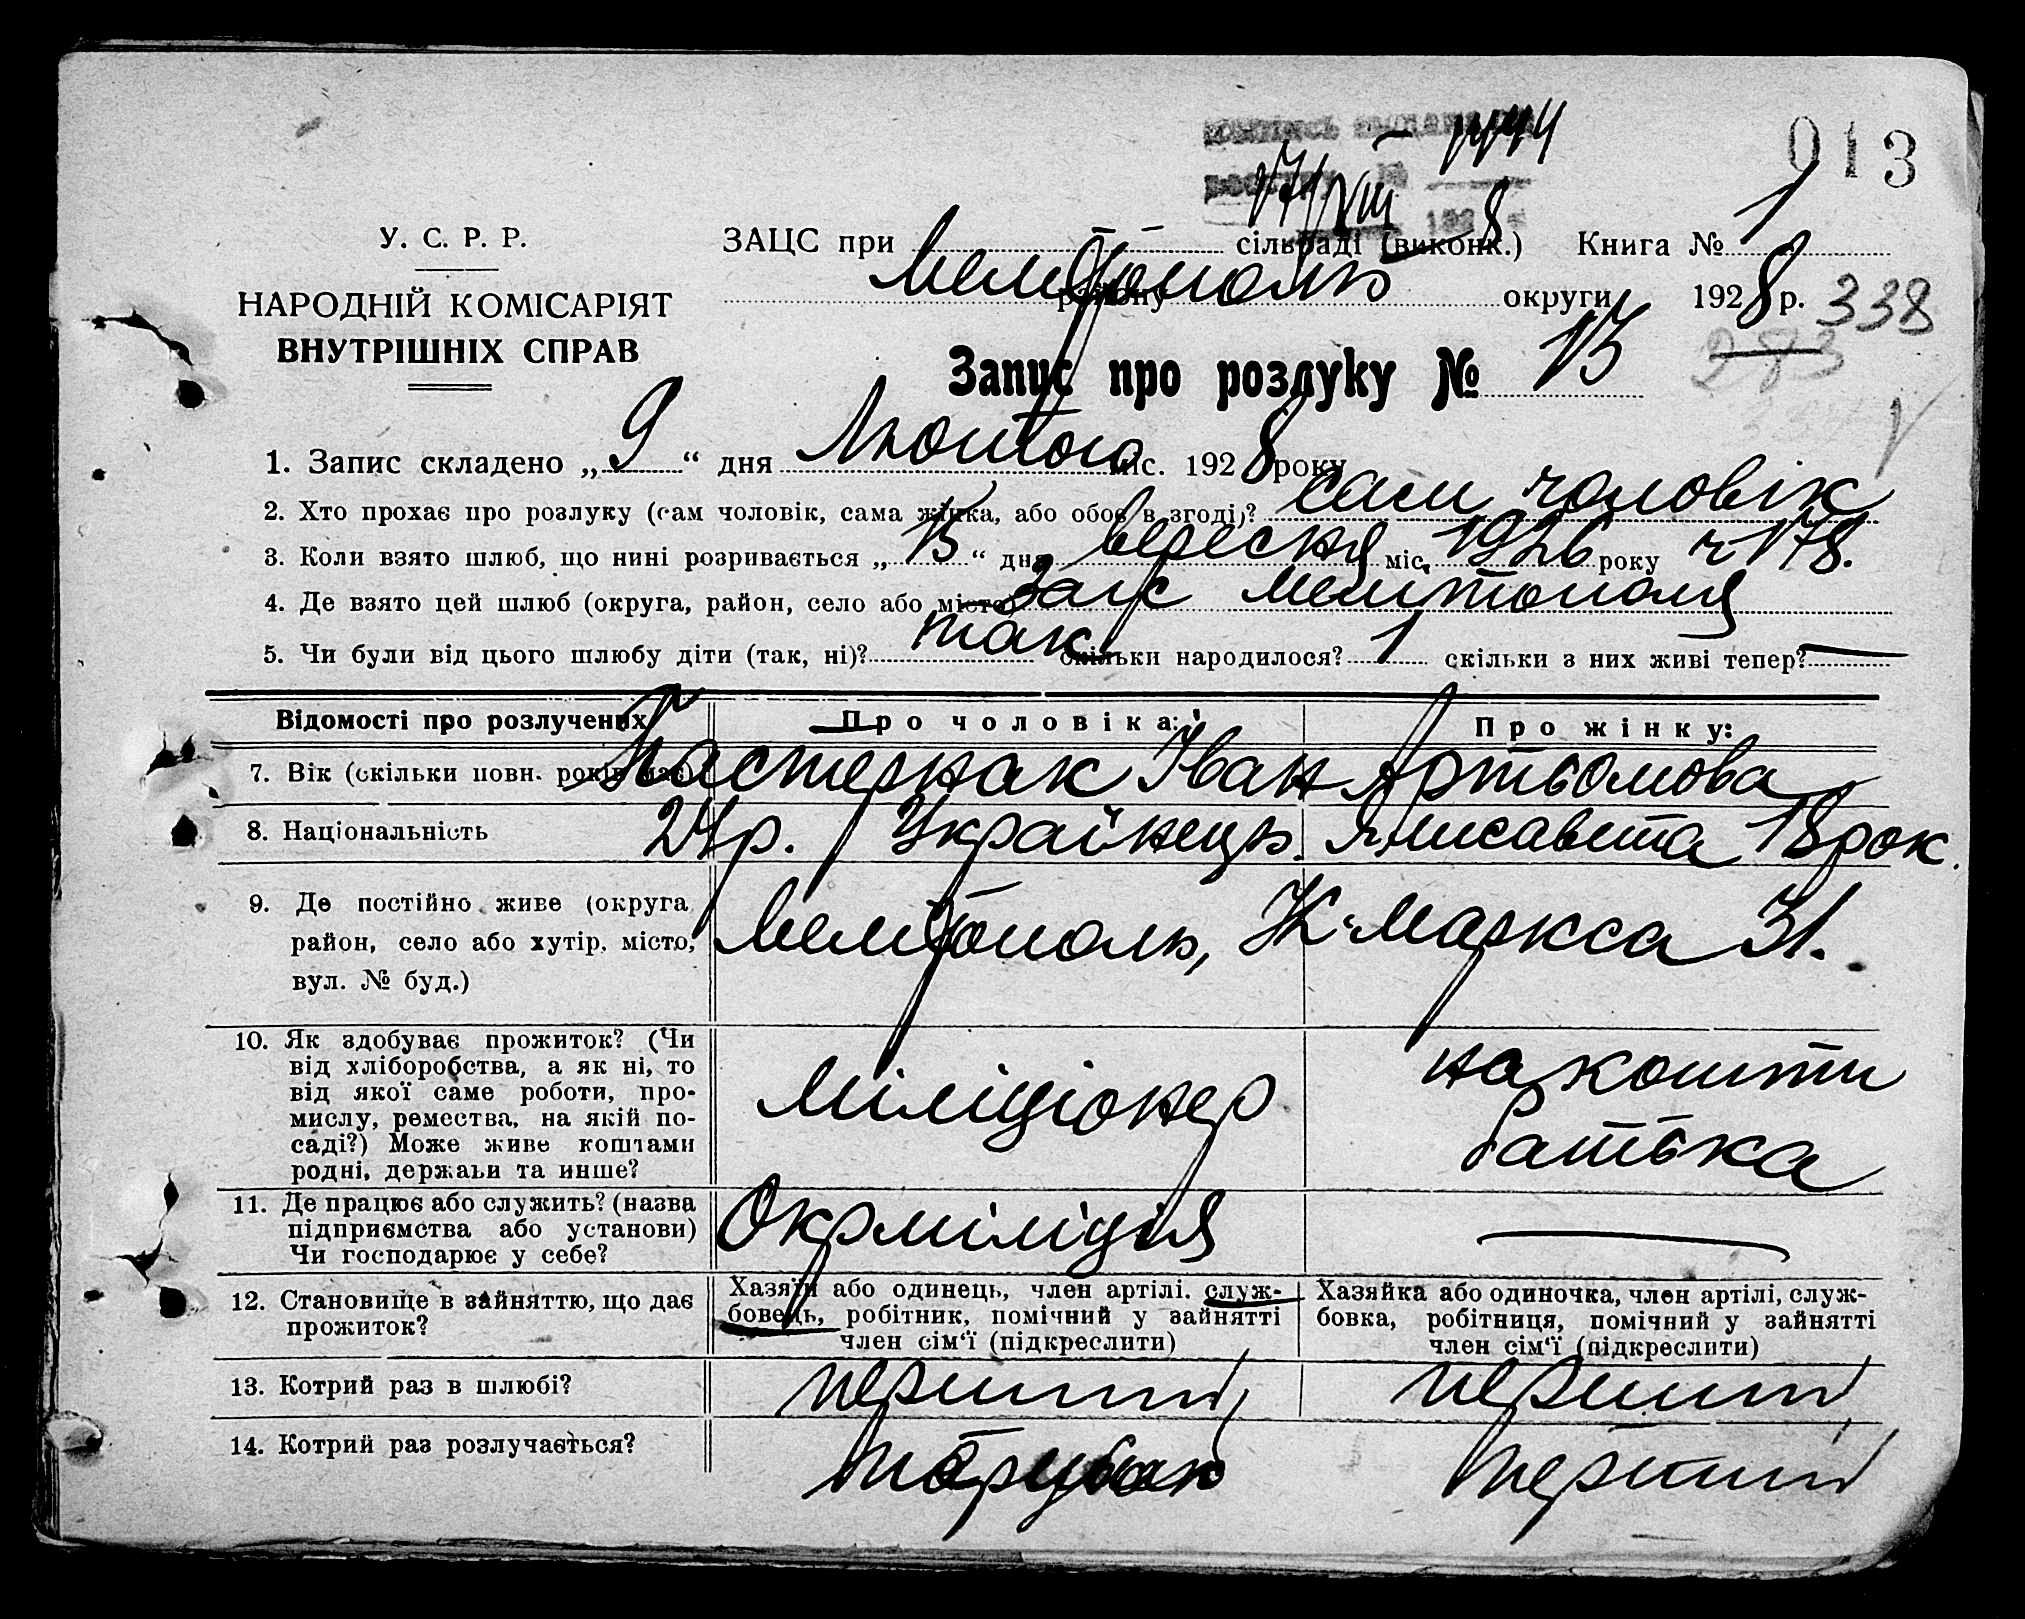 013
17/VIII
8
У. С. Р. Р.
ЗАЦС при сільраді (виконк.) Книга № 1
Мелітополь
району округи 1928 р. 338
НАРОДНІЙ КОМІСАРІЯТ
ВНУТРІШНІХ СПРАВ
283
Запис про розлуку № 13
1. Запис складено „9“ дня Лютого міс. 1928 року
2. Хто прохає про розлуку (сам чоловік, сама жінка, або обоє в згоді)? сам чоловік
3. Коли взято шлюб, що нині розривається „13“ дня вересня міс. 1926 року ч 178.
4. Де взято цей шлюб (округа, район, село або місто) Загс Мелітополя
5. Чи були від цього шлюбу діти (так, ні)? так Скільки народилося? 1 скільки з них живі тепер? —
Відомості про розлучених Про чоловіка: Про жінку:
7. Вік (скільки повн. років має) Пастернак Іван Артьомова
8. Національність 24 р. Українець. Ялисавета 18 рок.
9. Де постійно живе (округа
район, село або хутір, місто, Мелітополь, К. Маркса 31.
вул. № буд.)
10. Як здобуває прожиток? (Чи
від хліборобства, а як ні, то
від якої саме роботи, про-
мислу, ремества, на якій по-
саді?) Може живе коштами
родні, держави та инше?
Міліціонер
на кошти
батька
11. Де працює або служить? (назва
підприємства або установи)
Чи господарює у себе?
Окрміліція
—
12. Становище в зайняттю, що дає
прожиток?
Хазяїн або одинець, член артілі. служ-
бовець, робітник, помічний у зайнятті
член сім‘ї (підкреслити)
Хазяйка або одиночка, член артілі, служ-
бовка, робітниця, помічний у зайнятті
член сім‘ї (підкреслити)
13. Котрий раз в шлюбі? перший перший
14. Котрий раз розлучається? перший